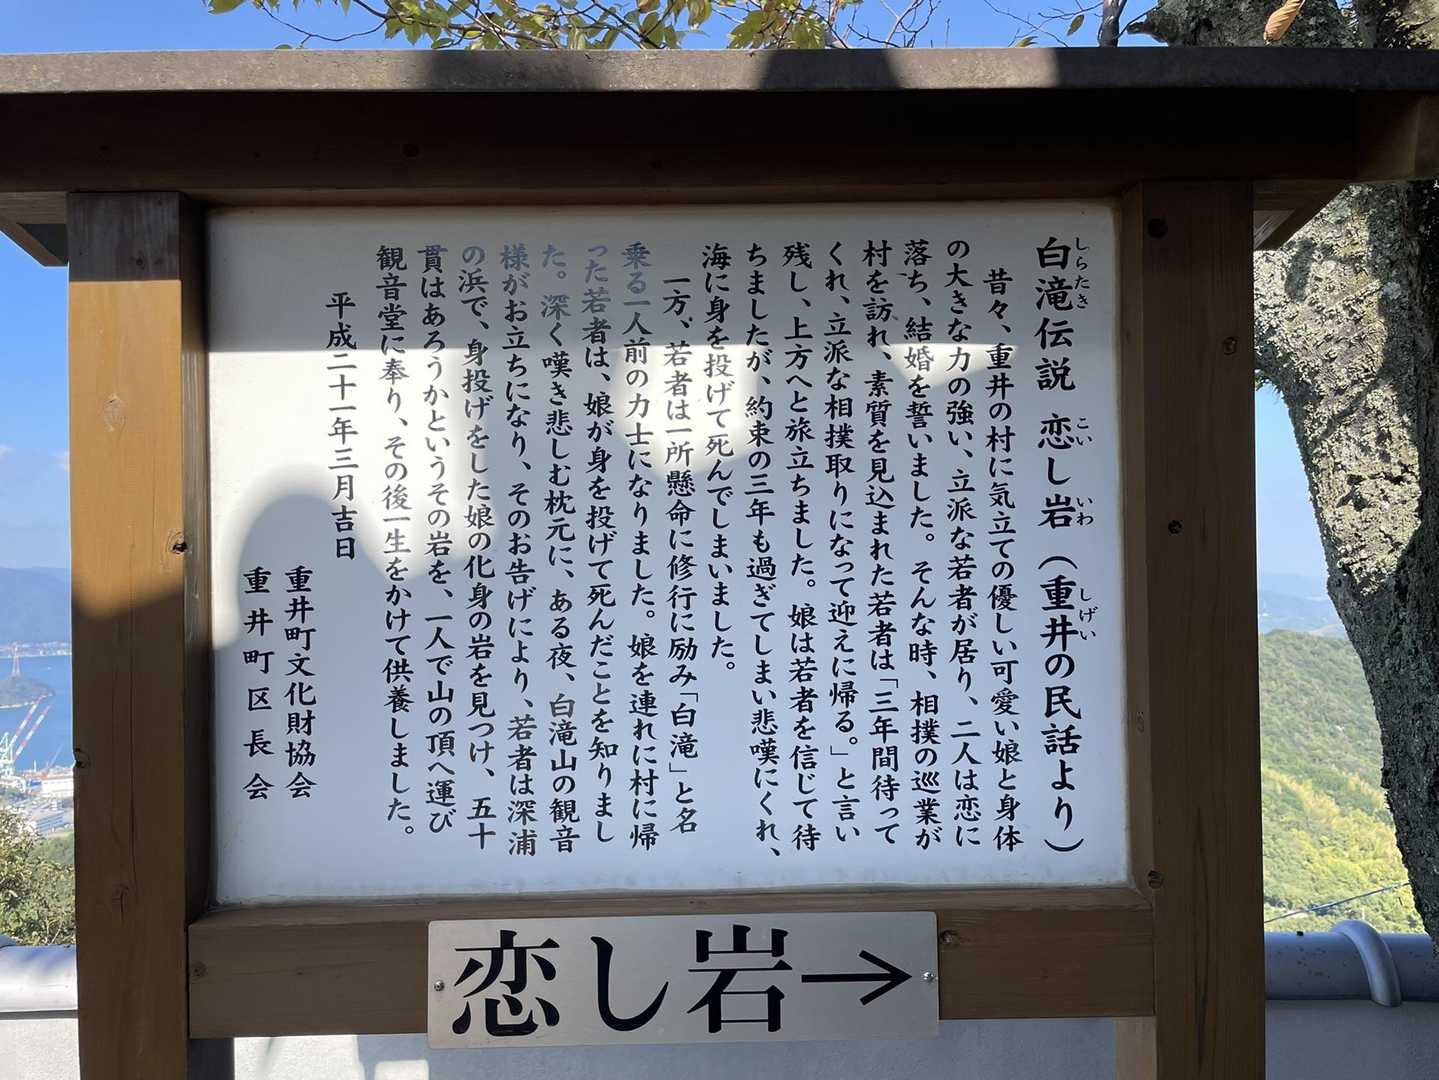 白滝伝説 恋し岩 (重井の民話より)
しらたき こい いわ しげい
昔々、重井の村に気立ての優しい可愛い娘と身体
の大きな力の強い、立派な若者が居り、二人は恋に
落ち、結婚を誓いました。そんな時、相撲の巡業が
村を訪れ、素質を見込まれた若者は「三年間待って
くれ、立派な相撲取りになって迎えに帰る。」と言い
残し、上方へと旅立ちました。娘は若者を信じて待
ちましたが、約束の三年も過ぎてしまい悲嘆にくれ、
海に身を投げて死んでしまいました。
一方、若者は一所懸命に修行に励み「白滝」と名
乗る一人前の力士になりました。娘を連れに村に帰
った若者は、娘が身を投げて死んだことを知りまし
た。深く嘆き悲しむ枕元に、ある夜、白滝山の観音
様がお立ちになり、そのお告げにより、若者は深浦
の浜で、身投げをした娘の化身の岩を見つけ、五十
貫はあろうかというその岩を、一人で山の頂へ運び
観音堂に奉り、その後一生をかけて供養しました。
平成二十一年三月吉日
重井町文化財協会
重井町区長会
恋し岩→